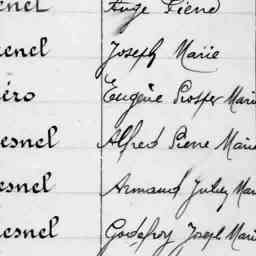 enel Ange Pierre
enel Joseph Marie
éro Eugène Prosper Marie
esnel Alfred Pierre Marie
esnel Armand Jules Mar
esnel Godefroy Joseph Marie